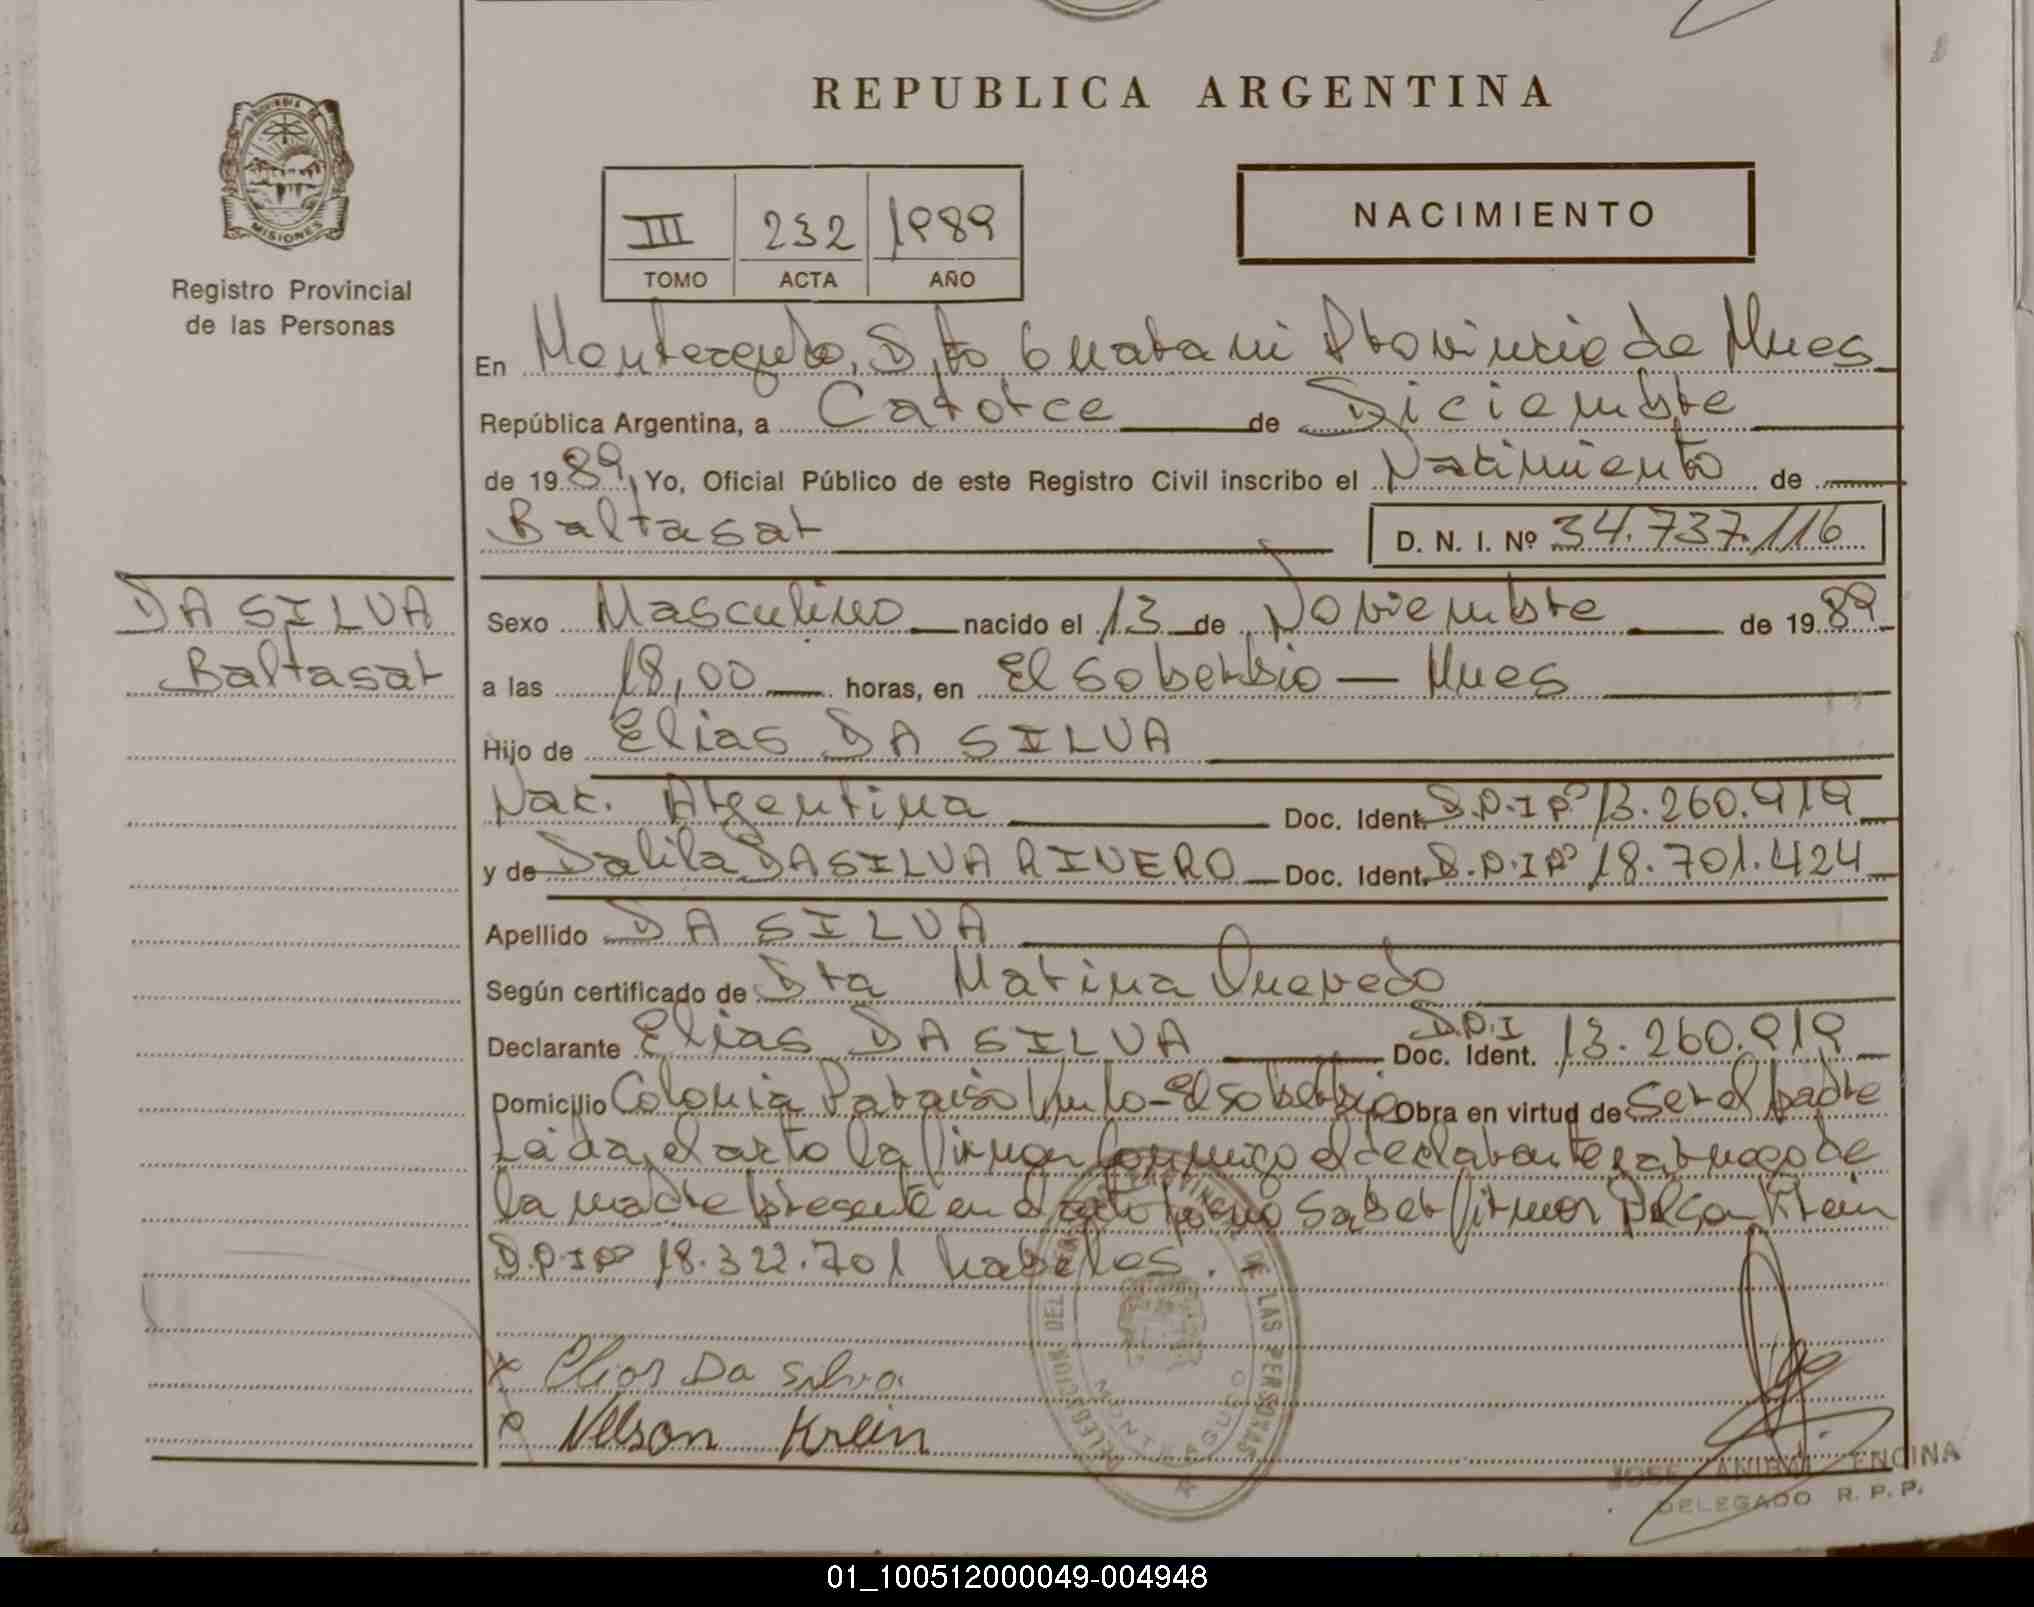 REPUBLICA ARGENTINA
PROVINCIA DE
MISIONES
Registro Provincial
de las Personas
III 232 1989
TOMO ACTA AÑO
NACIMIENTO
En Monteagudo, Dto Guarani Provincia de Mnes
República Argentina, a Catorce de Diciembre
de 1989, Yo, Oficial Público de este Registro Civil inscribo el Nacimiento de
Baltasar D. N. I. Nº 34.737.116
DA SILVA
Baltasar
Sexo Masculino nacido el 13 de Noviembre de 1989
a las 18,00 horas, en El Soberbio — Mnes
Hijo de Elias DA SILVA
Nac. Argentina Doc. Ident. D.N.I Nº 13.260.919
y de Dalila DA SILVA RIVERO Doc. Ident. D.N.I Nº 18.701.424
Apellido DA SILVA
Según certificado de Dra Marina Quevedo
Declarante Elias DA SILVA Doc. Ident. D.N.I 13.260.919
Domicilio Colonia Paraiso - El Soberbio Obra en virtud de Ser el padre
Leida el acta la firman conmigo el declarante y a ruego de
la madre presente en el acto por no saber firmar Nelson Krein
D.N.I Nº 18.322.701 habiles.
x Elias Da Silva
Nelson Krein
DELEGACION DEL REGISTRO PROVINCIAL DE LAS PERSONAS
MONTEAGUDO
JOSE ANIBAL ENCINA
DELEGADO R. P. P.
01_100512000049-004948